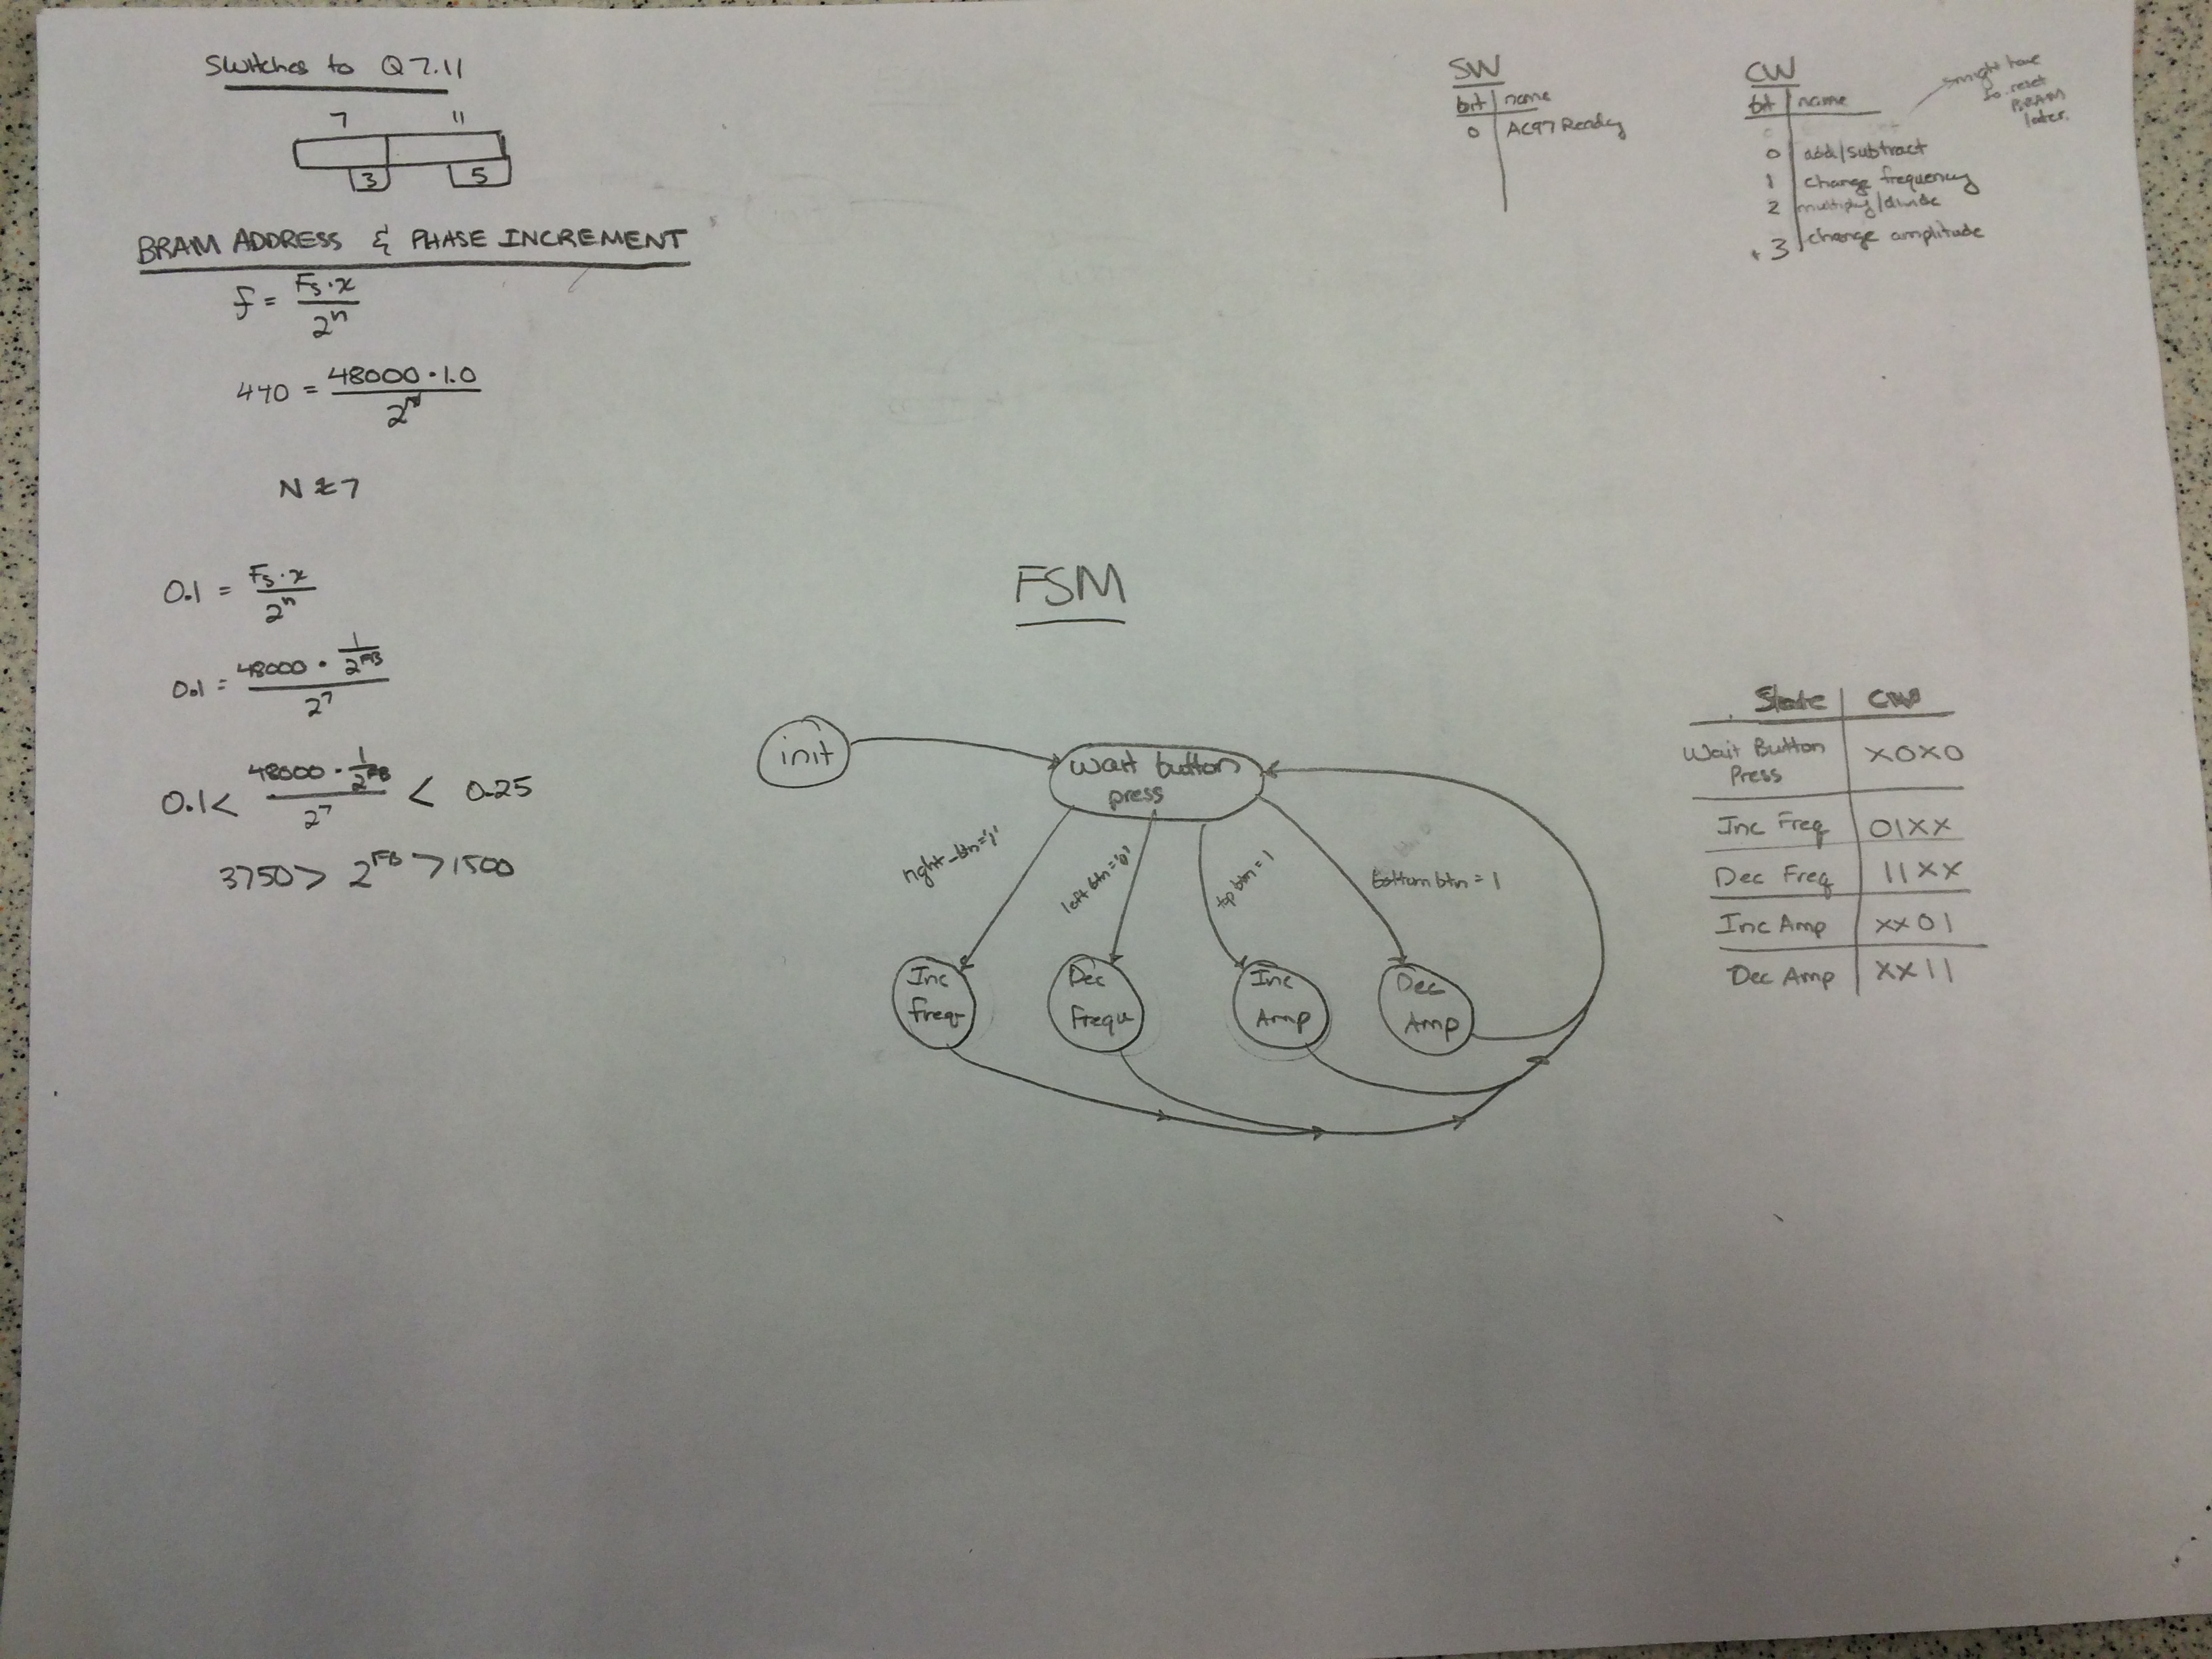 Switches to Q7.11
7 11
3 5
BRAM ADDRESS & PHASE INCREMENT
f = Fs·x / 2^n
440 = 48000·1.0 / 2^n
N ≈ 7
0.1 = Fs·x / 2^n
0.1 = 48000 · 1/2^FB / 2^7
0.1 < 48000 · 1/2^FB / 2^7 < 0.25
3750 > 2^FB > 1500
FSM
init
Wait button
press
right_btn='1'
left btn='0'
top btn=1
bottom btn=1
Inc
freq
Dec
Frequ
Inc
Amp
Dec
Amp
SW
bit | name
0 | AC97 Ready
CW
bit | name
0 | add/subtract
1 | change frequency
2 | multiply/divide
3 | change amplitude
might have
to reset
BRAM
later.
State | CW
Wait Button
Press | X0X0
Inc Freq | 01XX
Dec Freq | 11XX
Inc Amp | XX01
Dec Amp | XX11